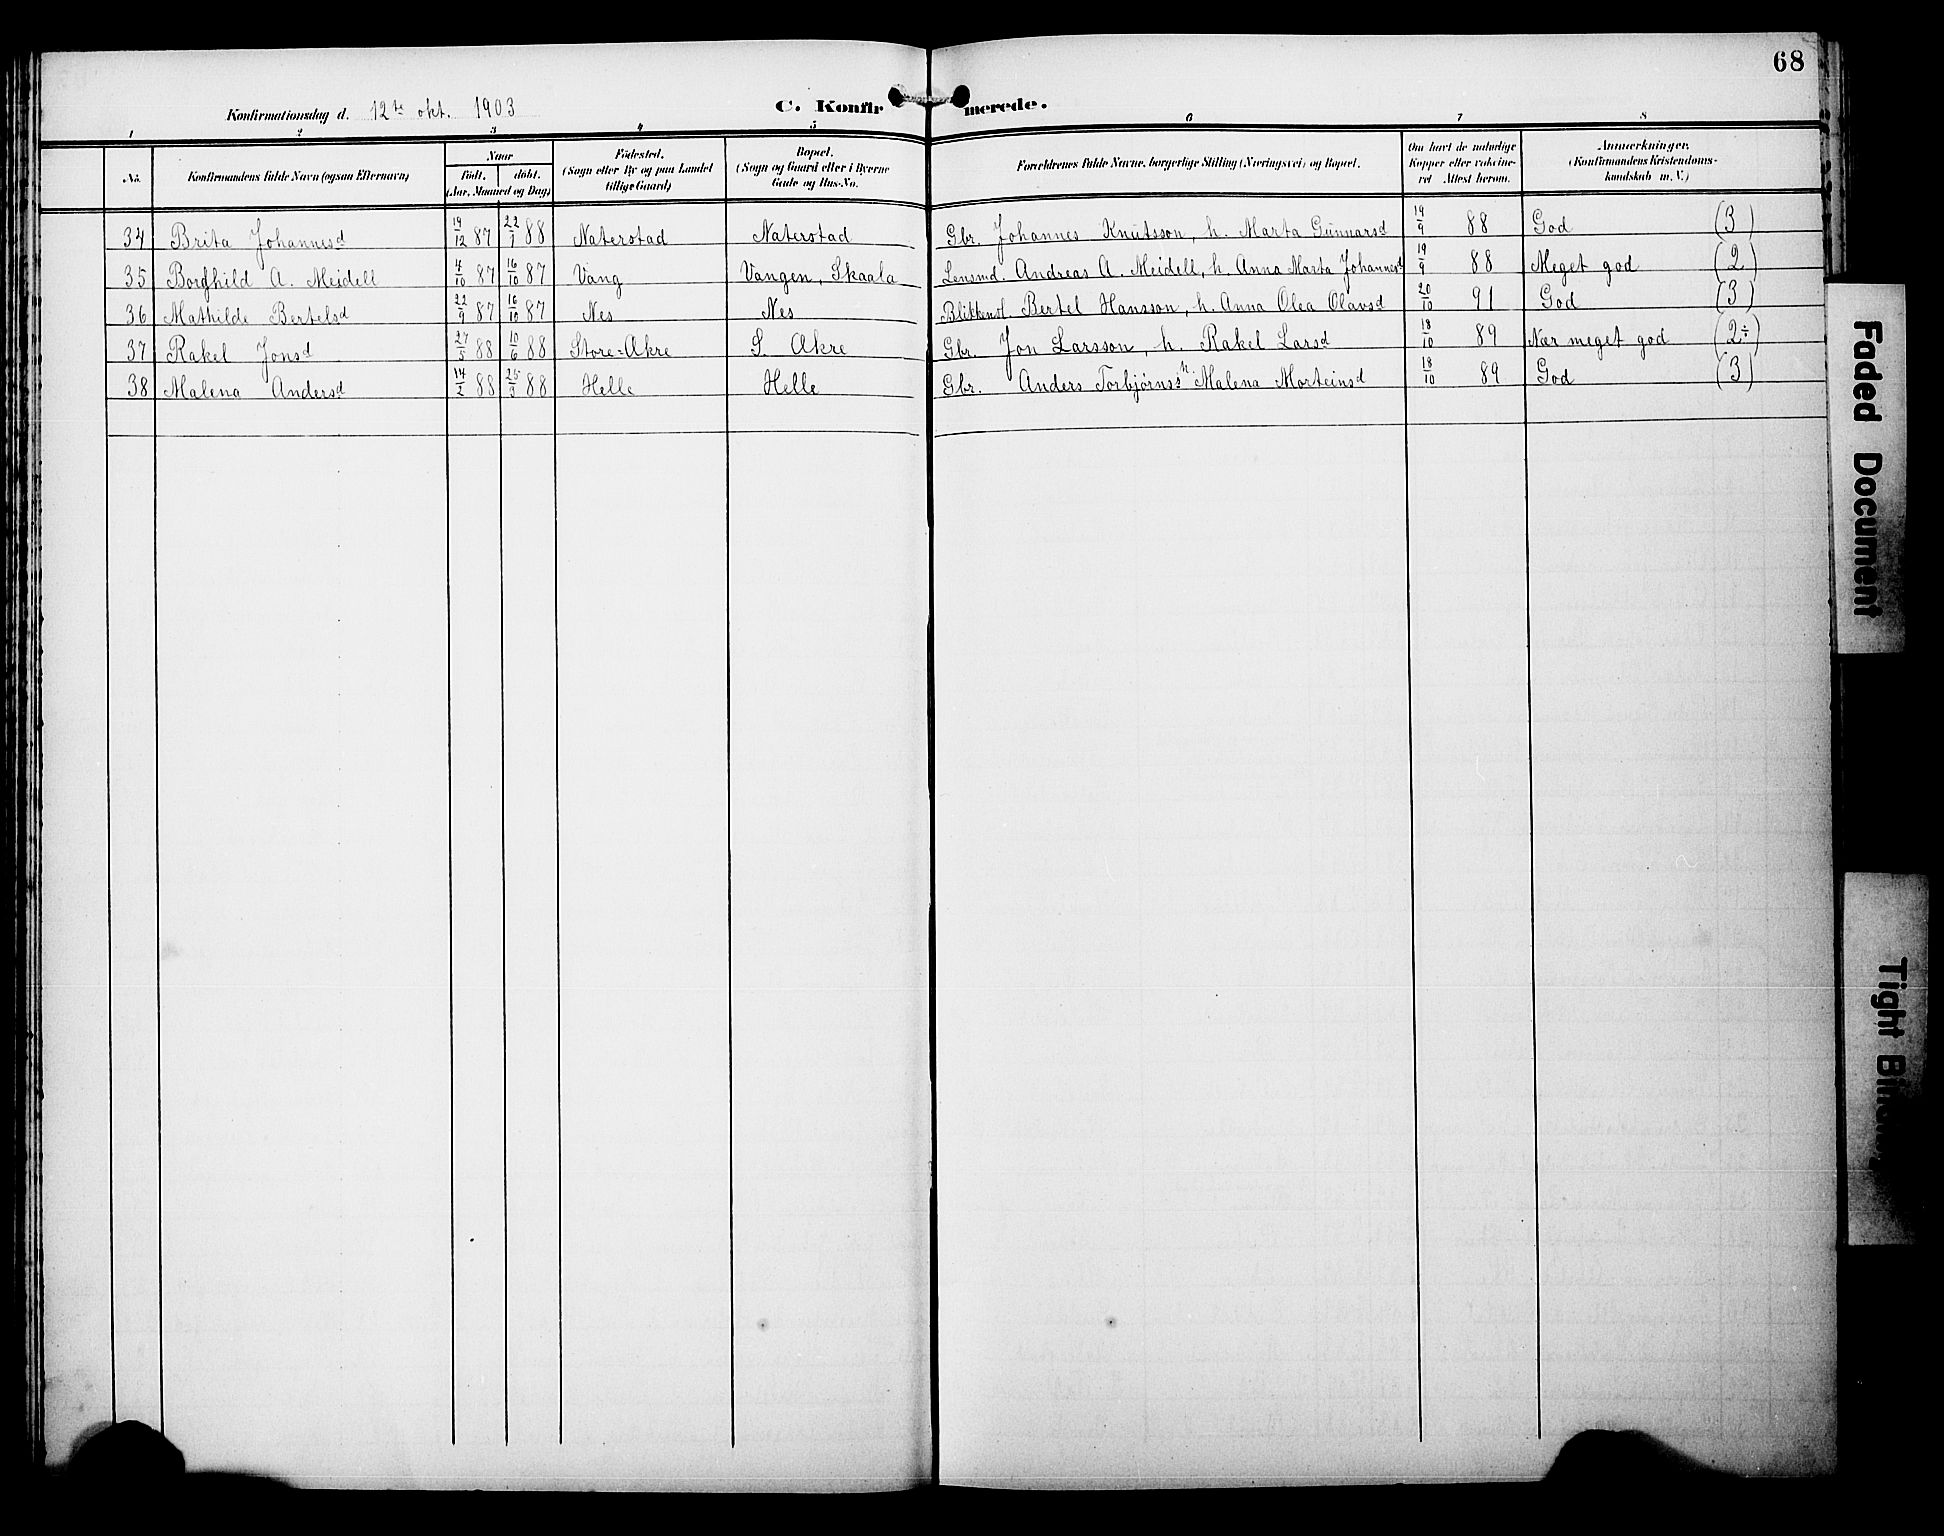 68
Konfirmationsdag d. 12te okt. 1903 C. Konfirmerede.
1 2 3 4 5 6 7 8
No. Konfirmandens fulde Navn (ogsaa Efternavn) Naar født. døbt. (Aar, Maaned og Dag) Fødested. (Sogn eller By og paa Landet tillige Gaard) Bopæl. (Sogn og Gaard eller i Byerne Gade og Hus-No. Forældrenes fulde Navne, borgerlige Stilling (Næringsvei) og Bopæl. Om havt de naturlige Kopper eller vakcineret Attest herom. Anmerkninger. (Konfirmandens Kristendomskundskab m. V.)
34 Brita Johannesd 19/12 87 22/1 88 Naterstad Naterstad Gbr. Johannes Knutsson, h. Marta Gunnarsd 19/9 88 God (3)
35 Borghild A. Meidell 4/10 87 16/10 87 Vang Vangen, Skaala Lensmd. Andreas A. Meidell, h. Anna Marta Johannesd 19/9 88 Meget god (2)
36 Mathilde Bertelsd 22/9 87 16/10 87 Nes Nes Blikkensl. Bertel Hansson, h. Anna Olea Olavsd 20/10 91 God (3)
37 Rakel Jonsd 27/5 88 10/6 88 Store-Akre S. Akre Gbr. Jon Larsson, h. Rakel Larsd 18/10 89 Nær meget god (2÷)
38 Malena Andersd 14/2 88 25/3 88 Helle Helle Gbr. Anders Torbjørnss h. Malena Morteinsd 18/10 89 God (3)
Faded Document
Tight